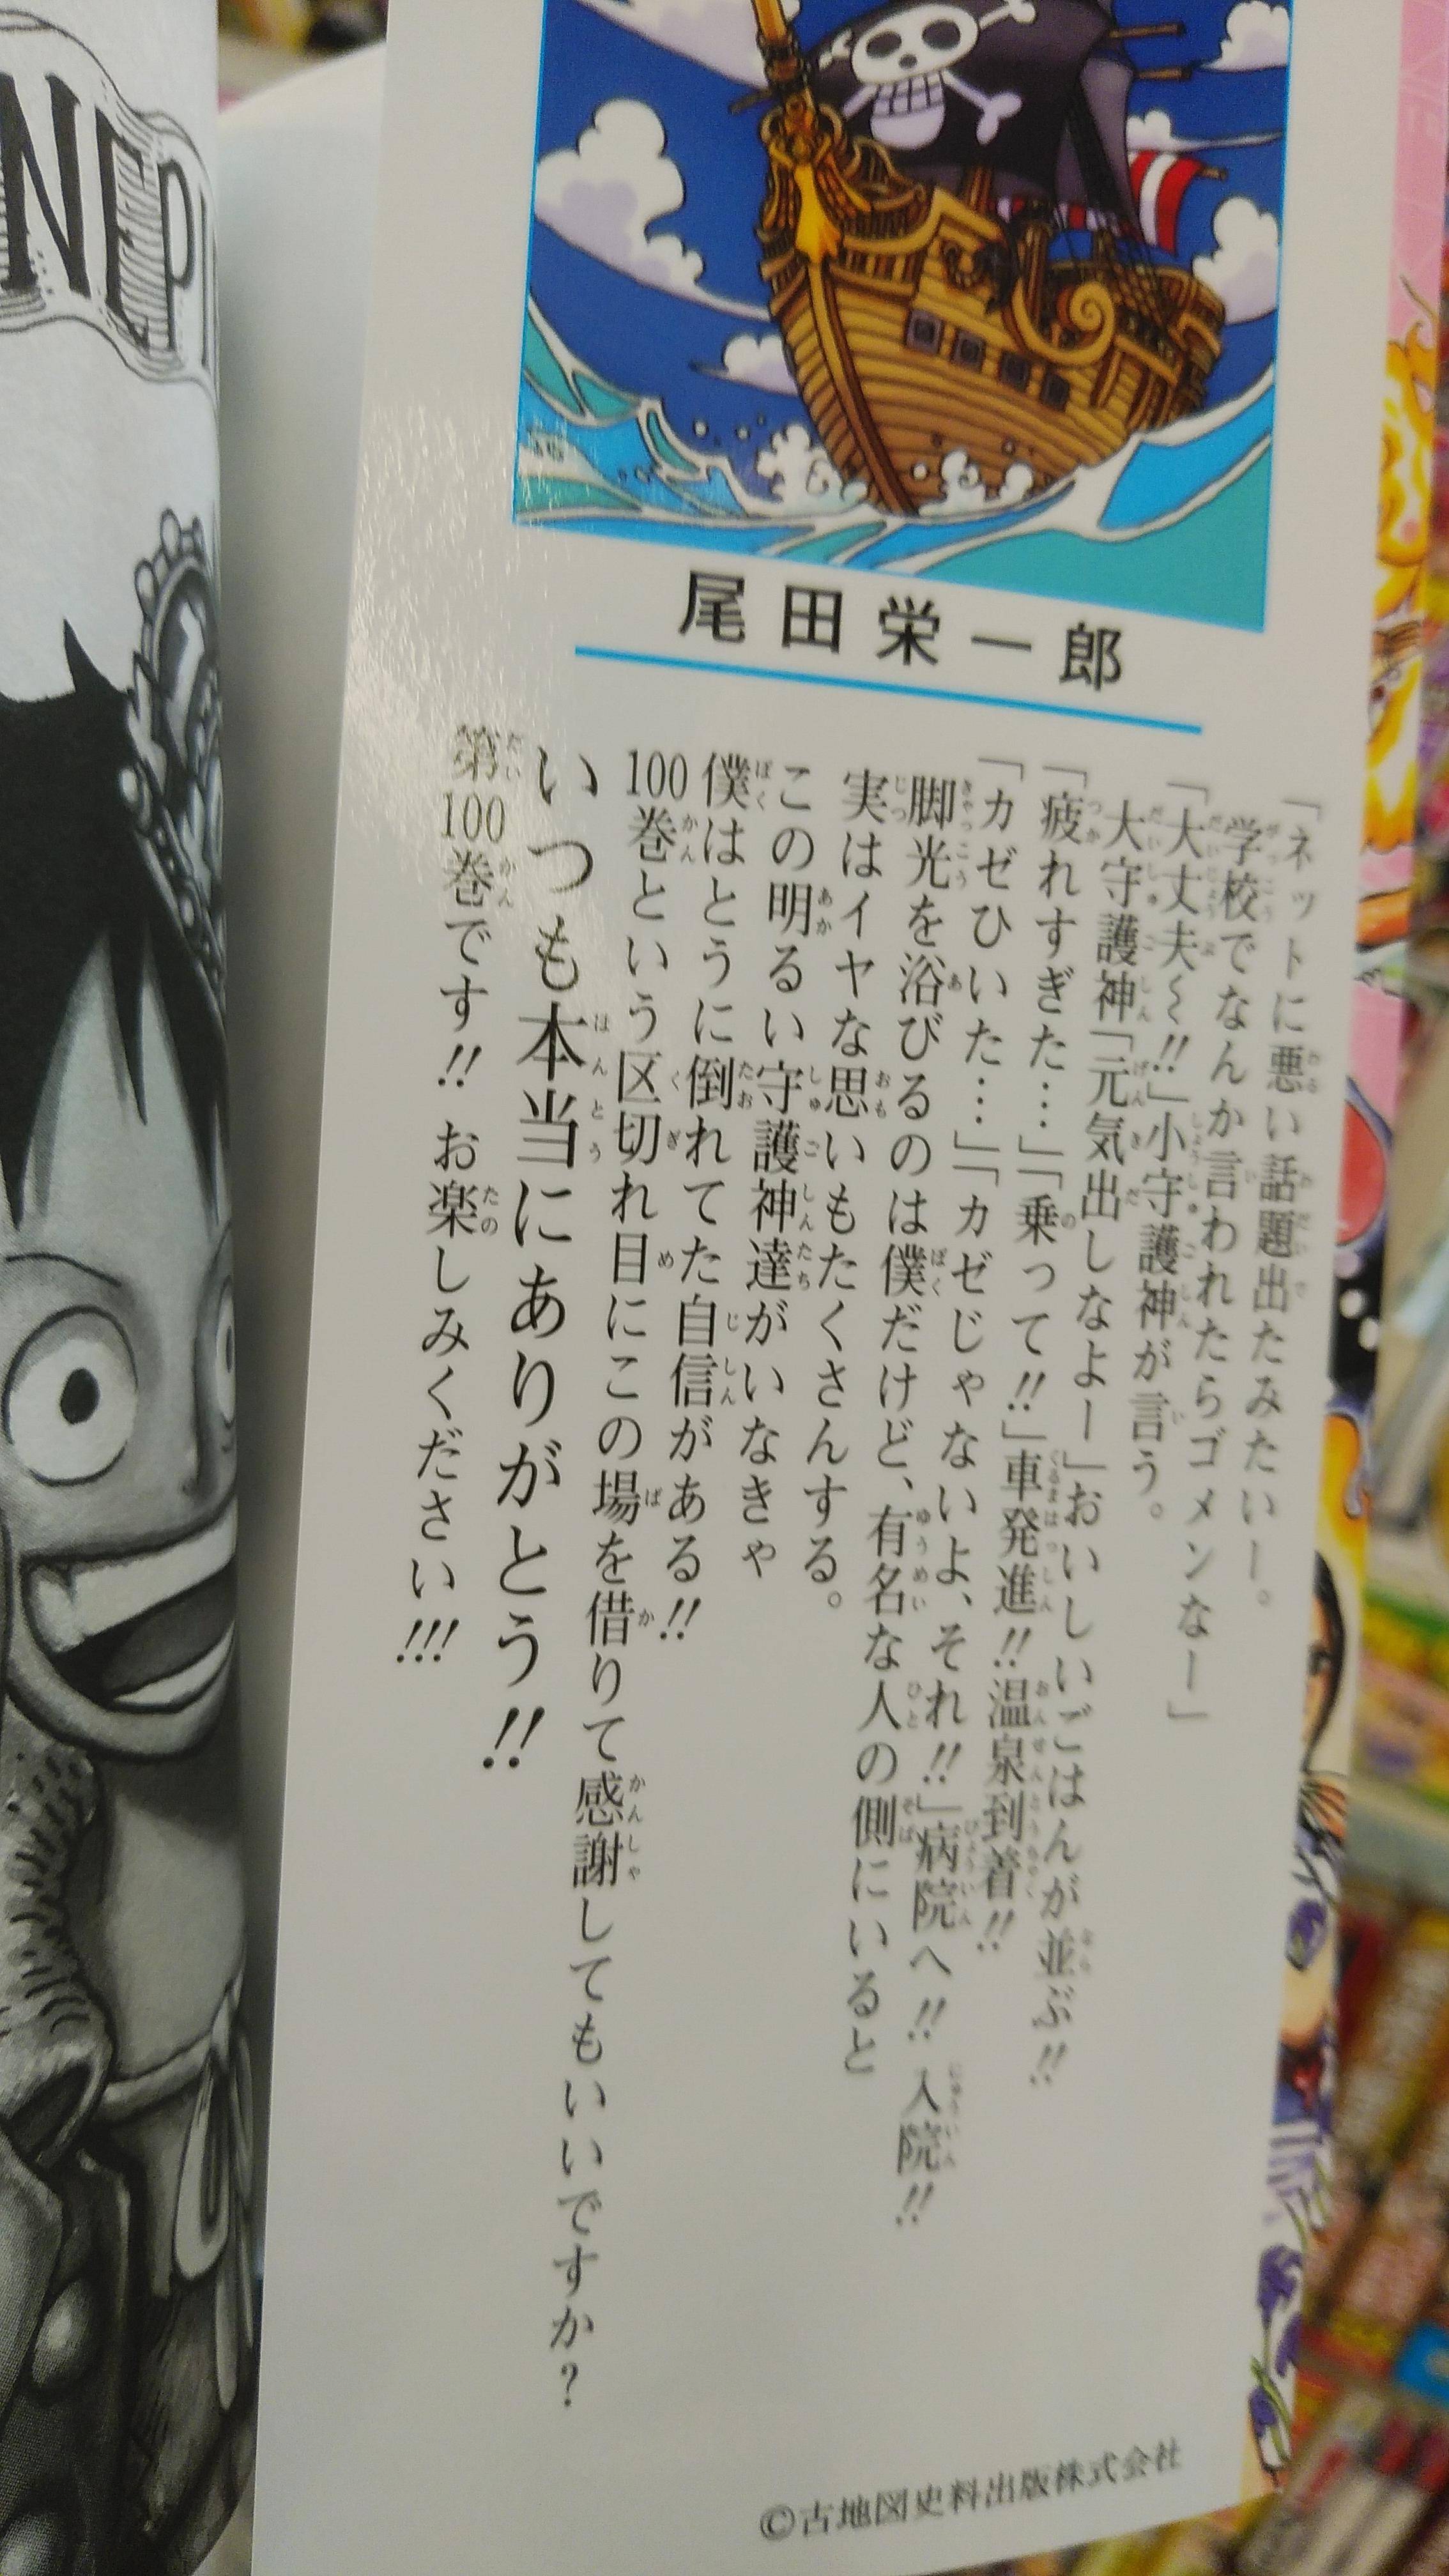 尾田栄一郎
「ネットに悪い話題出たみたいー。
学校でなんか言われたらゴメンなー」
「大丈夫〜!!」小守護神が言う。
大守護神「元気出しなよー」おいしいごはんが並ぶ!!
「疲れすぎた…」「乗って!!」車発進!!温泉到着!!
「カゼひいた…」「カゼじゃないよ、それ!!」病院へ!! 入院!!
脚光を浴びるのは僕だけど、有名な人の側にいると
実はイヤな思いもたくさんする。
この明るい守護神達がいなきゃ
僕はとうに倒れてた自信がある!!
100巻という区切れ目にこの場を借りて感謝してもいいですか？
いつも本当にありがとう!!
第100巻です!! お楽しみください!!!
©古地図史料出版株式会社